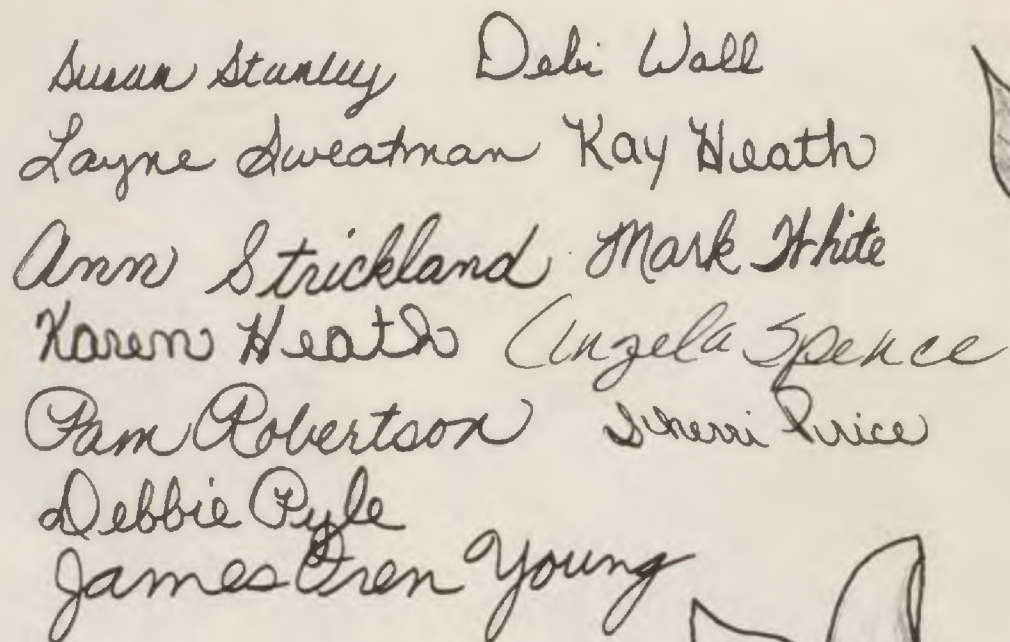 Susan Stanley Debi Wall
Layne Sweatman Kay Heath
Ann Strickland Mark White
Karen Heath Angela Spence
Pam Robertson Sherri Price
Debbie Pyle
James Oren Young